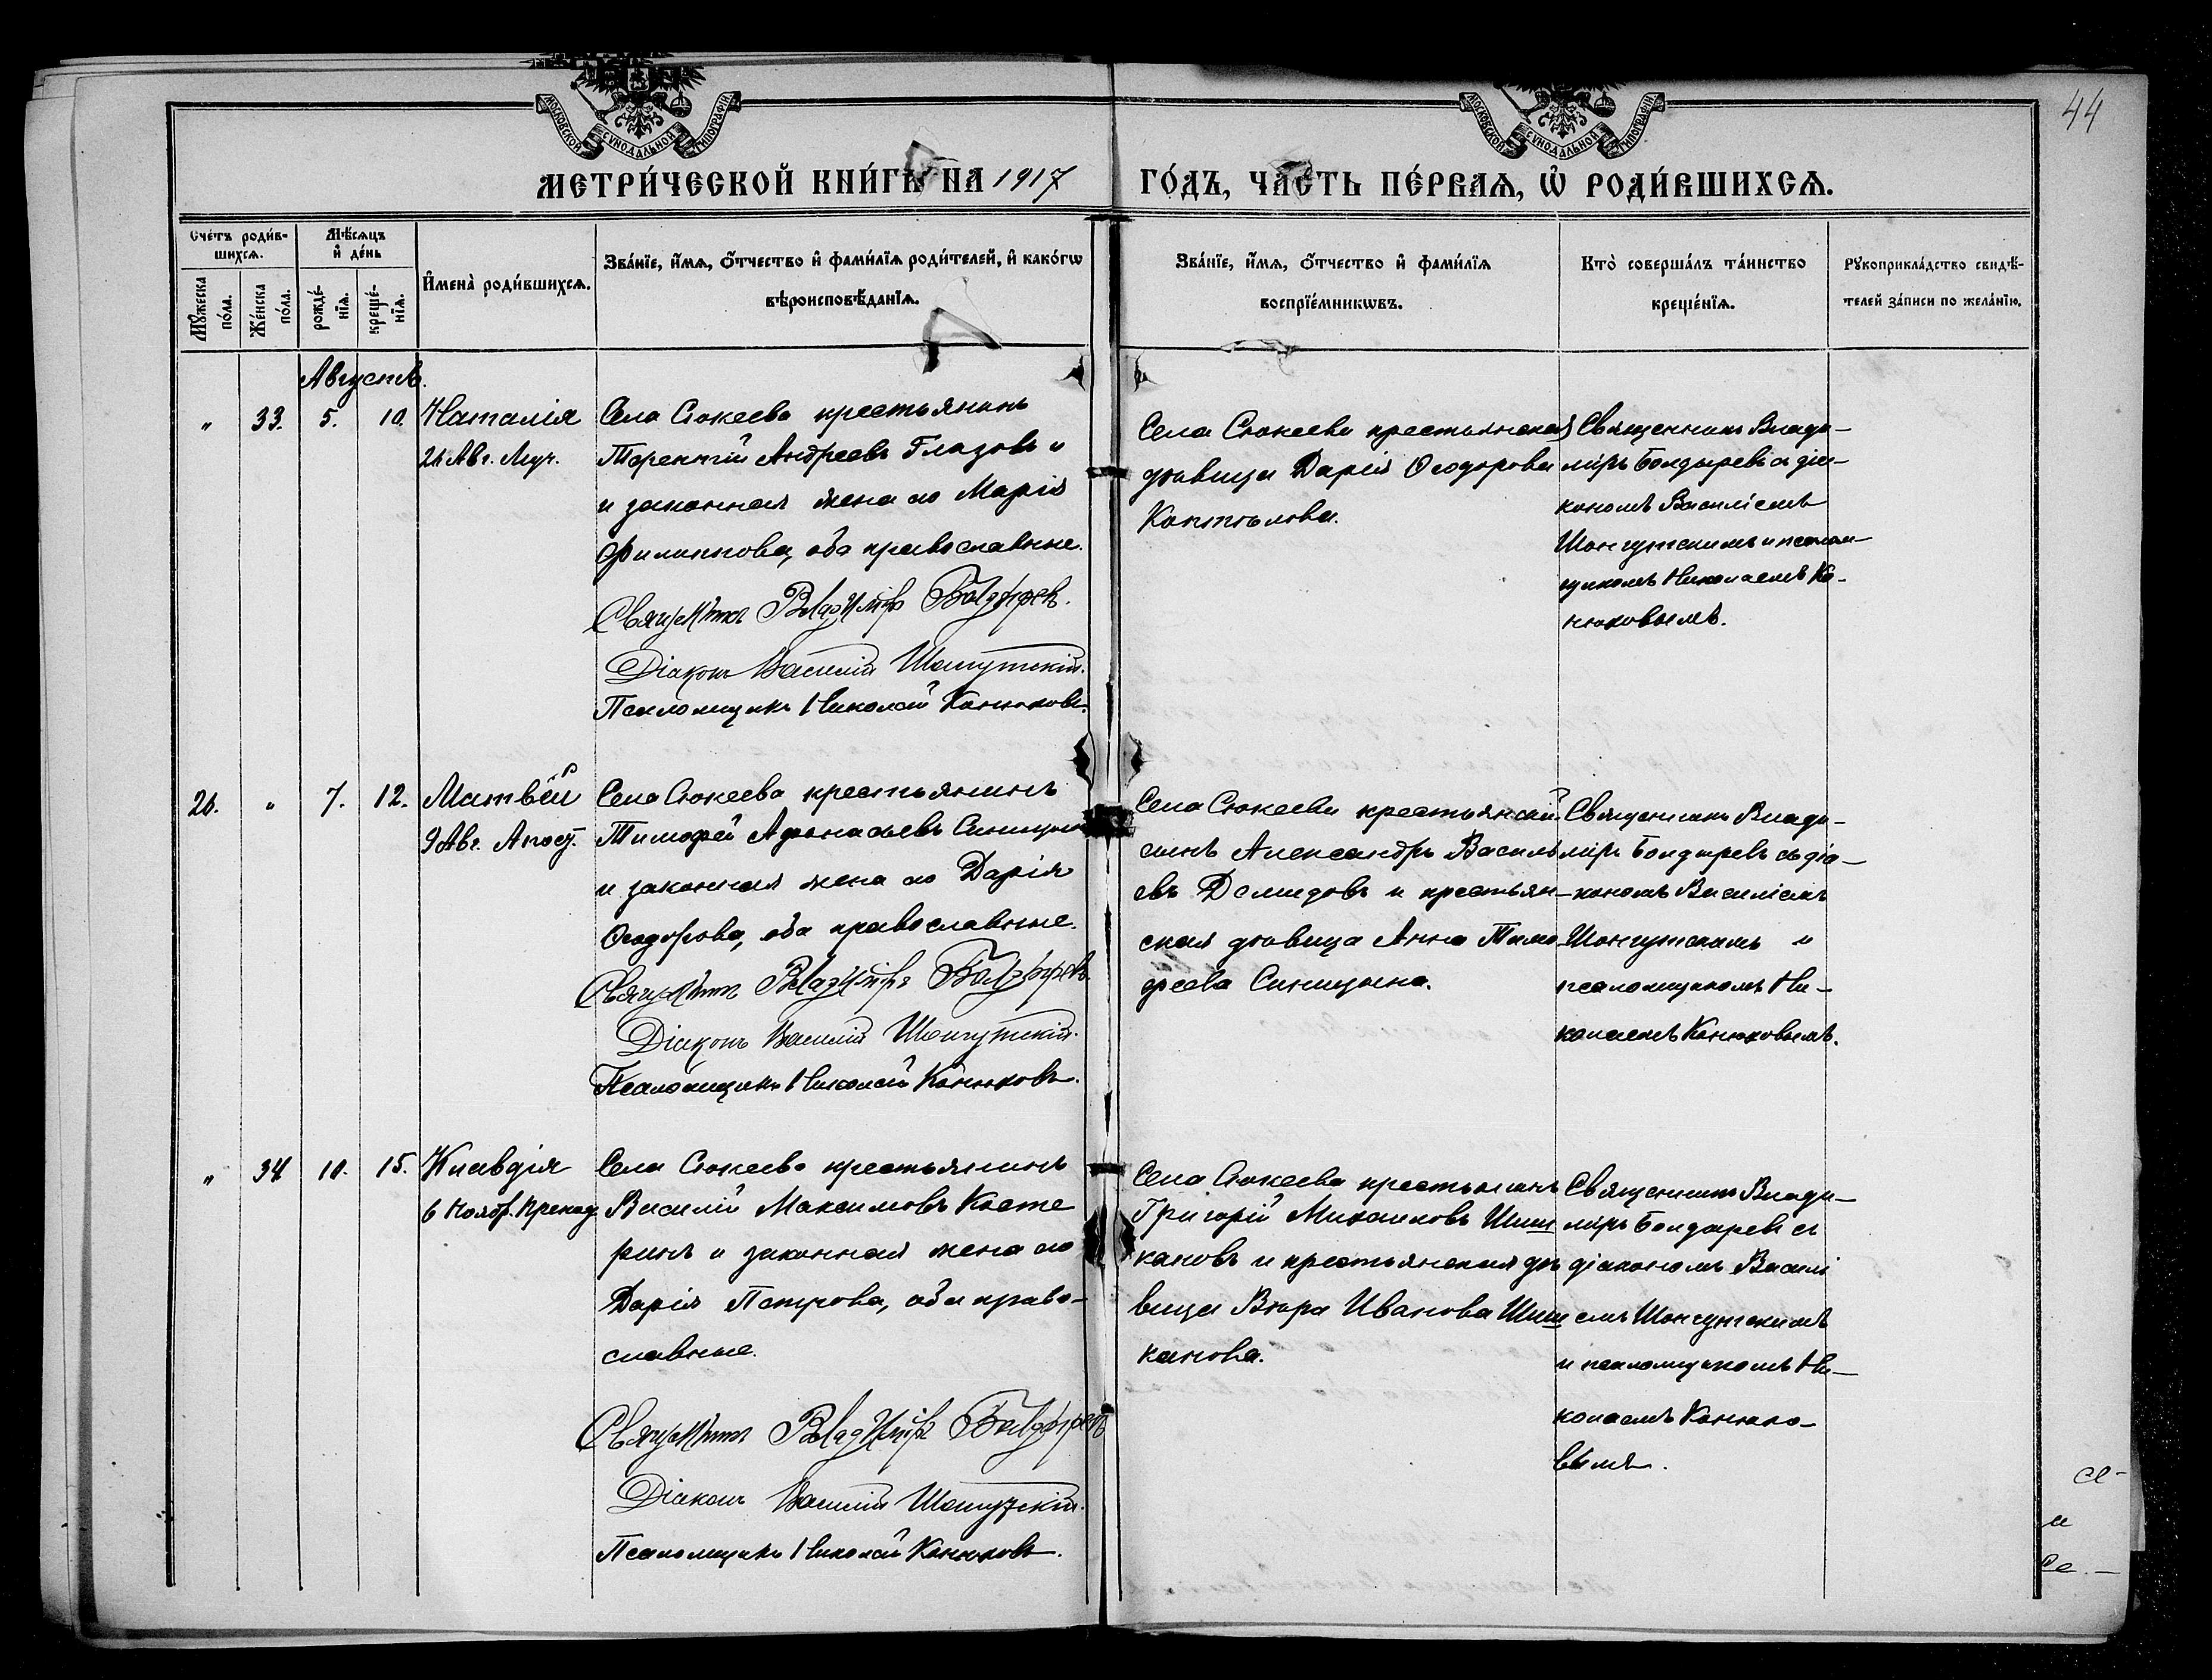 44
МОСКОВСКОЙ СѴНОДАЛЬНОЙ ТИПОГРАФІИ
МОСКОВСКОЙ СѴНОДАЛЬНОЙ ТИПОГРАФІИ
МЕТРИ́ЧЕСКОЙ КНИ́ГИ НА 1917 ГО́ДЪ, ЧА́СТЬ ПЕ́РВАѦ, Ѡ҆ РОДИ́ВШИХСѦ.
Сче́тъ роди́в-
шихсѧ.
Мꙋ́жеска
по́ла.
Же́нска
по́ла.
Мѣ́сѧцъ
и҆ де́нь
рожде́-
нїѧ.
креще́-
нїѧ.
И҆мена̀ роди́вшихсѧ.
Зва́нїе, и҆́мѧ, ѻ҆́тчество и҆ фами́лїѧ роди́телей, и҆ како́гѡ
вѣроисповѣ́данїѧ.
Зва́нїе, и҆́мѧ, ѻ҆́тчество и҆ фами́лїѧ
воспрїе́мникѡвъ.
Кто̀ соверша́лъ та́инство
креще́нїѧ.
Рꙋкоприкла́дство свидѣ́-
телей за́писи по жела́нїю.
Августъ.
„ 33. 5. 10. Наталія
26 Авг. Муч.
Села Сюкеева крестьянинъ
Терентій Андреевъ Глазовъ и
и законная жена его Марія
Филиппова, оба православные.
Священникъ Владиміръ Болдыревъ.
Діаконъ Василій Шонгутскій.
Псаломщикъ Николай Канюковъ.
Села Сюкеева крестьянская
дѣвица Дарія Ѳеодорова
Священникъ Влади-
міръ Болдыревъ съ діа-
кономъ Василіемъ
Шонгутскимъ и псалом-
щикомъ Николаемъ Ка-
нюковымъ.
26. „ 7. 12. Матвѣй
9 Авг. Апост.
Села Сюкеева крестьянинъ
Тимофей Афонасьевъ Синицынъ
и законная жена его Дарія
Ѳеодорова, оба православные.
Священникъ Владиміръ Болдыревъ.
Діаконъ Василій Шонгутскій.
Псаломщикъ Николай Канюковъ.
Села Сюкеева крестьянскій
сынъ Александръ Василь
евъ Демидовъ и крестьян-
ская дѣвица Анна Тимо
феева Синицына.
Священникъ Влади-
міръ Болдыревъ съ діа-
кономъ Василіемъ
Шонгутскимъ и
псаломщикомъ Ни-
колаемъ Канюковымъ.
„ 34 10. 15. Клавдія
6 Ноябр.
Села Сюкеева крестьянинъ
Василій Максимовъ Косте
ринъ и законная жена его
Дарія Петрова, оба право-
славные.
Священникъ Владиміръ Болдыревъ
Діаконъ Василій Шонгутскій.
Псаломщикъ Николай Канюковъ.
Села Сюкеева крестьянинъ
Григорій Михаиловъ Шиш
кановъ и крестьянская дѣ
вица Вѣра Иванова Шиш
канова.
Священникъ Влади-
міръ Болдыревъ съ
діакономъ Василі
емъ Шонгутскимъ
и псаломщикомъ Ни-
колаемъ Канюко-
вымъ.